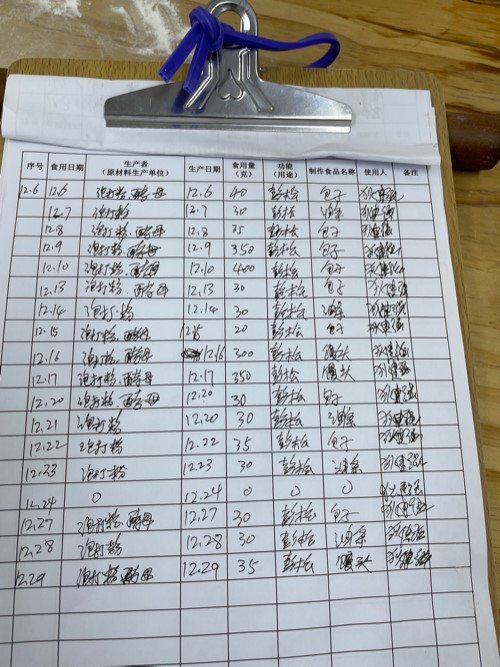 序号 食用日期 生产者（原材料生产单位） 生产日期 食用量（克） 功能（用途） 制作食品名称 使用人 备注
12.6 12.6 泡打粉、酵母 12.6 40 彭松 包子
12.7 泡打粉 12.7 30 彭松 油条
12.8 泡打粉、酵母 12.8 35 彭松 包子
12.9 泡打粉、酵母 12.9 350 彭松 包子
12.10 泡打粉、酵母 12.10 400 彭松 包子
12.13 泡打粉、酵母 12.13 30 彭松 包子
12.14 泡打粉 12.14 30 彭松 油条
12.15 泡打粉、酵母 20 彭松 包子
12.16 泡打粉、酵母 12.16 300 彭松 馒头
12.17 泡打粉、酵母 12.17 350 彭松 馒头
12.20 泡打粉、酵母 12.20 30 彭松 包子
12.21 泡打粉 12.20 30 彭松 油条
12.22 泡打粉 12.22 35 彭松 包子
12.23 泡打粉 12.23 30 彭松 油条
12.24 0 12.24 0 0 0
12.27 泡打粉、酵母 12.27 30 彭松 包子
12.28 泡打粉 12.28 30 彭松 油条
12.29 泡打粉、酵母 12.29 35 彭松 馒头